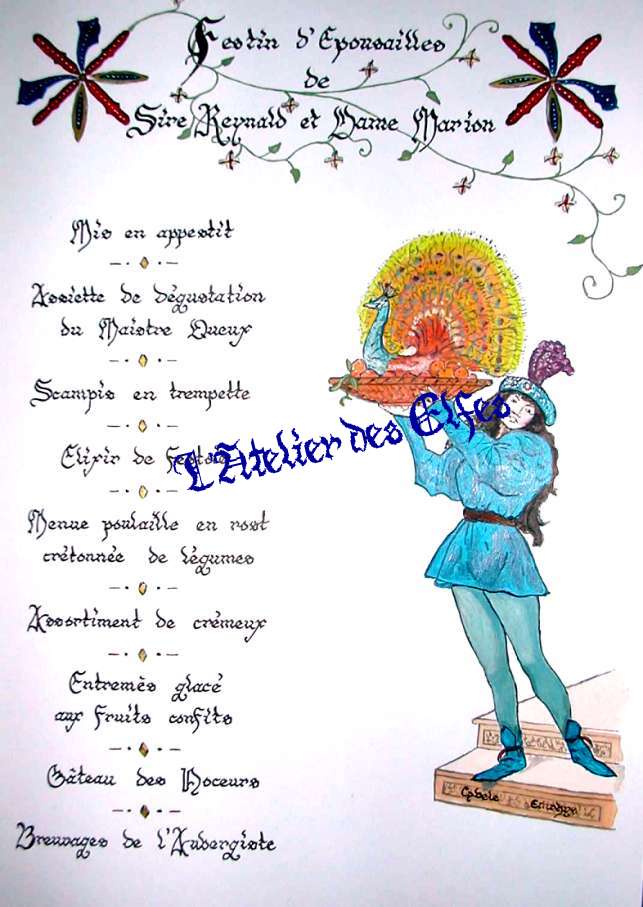 Festin d'Epousailles
de
Sire Reynald et Dame Marion
Mis en appestit
Assiette de dégustation
du Maistre Queux
Scampis en trempette
Elixir de
L'Atelier des Elfes
Menue poulaille en rost
crétonnée de légumes
Assortiment de crémeux
Entremès glacé
aux fruits confits
Gâteau des Noceurs
Breuvages de l'Aubergiste